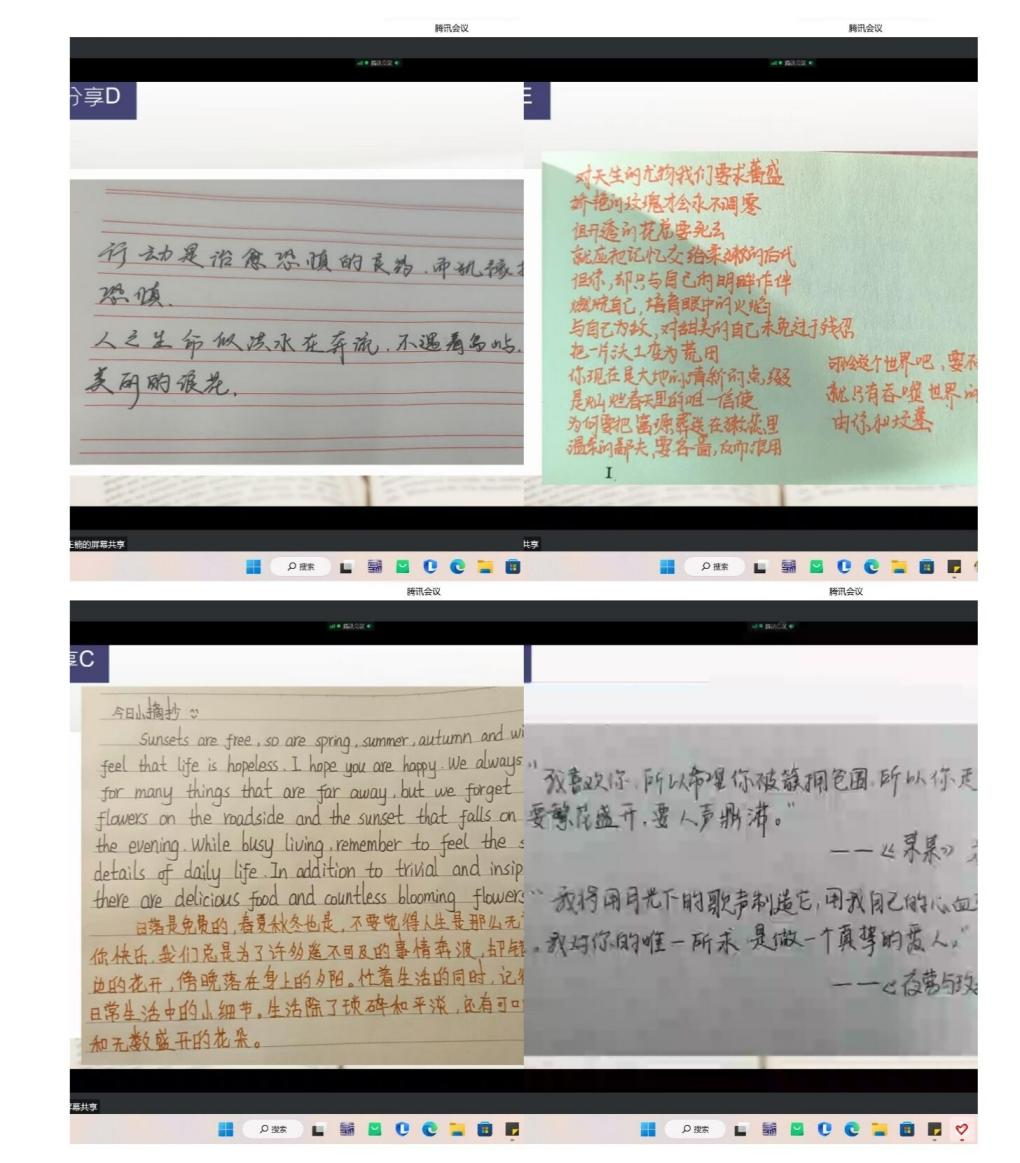 腾讯会议
腾讯会议
分享D
行动是治愈恐惧的良药,而犹豫
恐惧.
人之生命似洪水在奔流,不遇着岛屿,
美丽的浪花.
对天生的尤物我们要求蕃盛
娇艳的玫瑰才会永不凋零
但开透的花朵要死去
就应把记忆交给柔嫩的后代
但你,却只与自己的明眸作伴
燃烧自己,培育眼中的火焰
与自己为敌,对甜美的自己未免过于残忍
把一片沃土变为荒田
你现在是大地的清新的点缀
是灿烂春天里的唯一信使
为何要把富源葬送在嫩蕊里
温柔的鄙夫,要吝啬,反而浪用
可怜这个世界吧,要不
就只有吞噬世界的
由你和坟墓
的屏幕共享
共享
搜索
搜索
腾讯会议
腾讯会议
享C
今日小摘抄
Sunsets are free, so are spring, summer, autumn and wi
feel that life is hopeless. I hope you are happy. We always
for many things that are far away, but we forget
flowers on the roadside and the sunset that falls on
the evening. While busy living, remember to feel the s
details of daily life. In addition to trivial and insip
there are delicious food and countless blooming flowers
日落是免费的,春夏秋冬也是,不要觉得人生是那么无
你快乐,我们总是为了许多遥不可及的事情奔波,却
边的花开,傍晚落在身上的夕阳。忙着生活的同时,记得
日常生活中的小细节。生活除了琐碎和平淡,还有可口
和无数盛开的花朵。
"我喜欢你,所以希望你被簇拥包围,所以你走
要繁花盛开,要人声鼎沸。"
——《某某》
"我将用月光下的歌声制造它,用我自己的心血
,我对你的唯一所求 是做一个真挚的爱人,"
——《夜莺与玫
屏幕共享
搜索
搜索